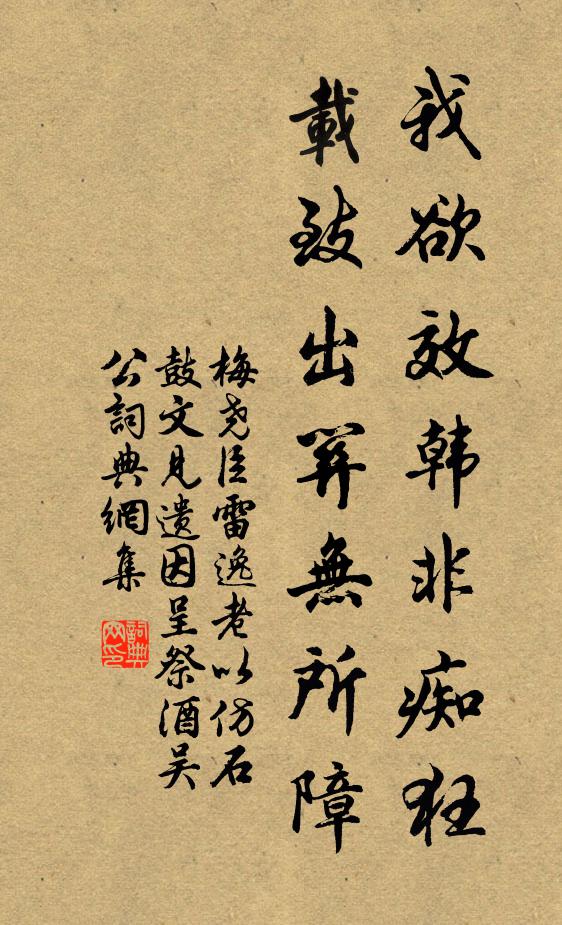 我欲效韩非痴狂
載致出關無所障
梅尧臣雷逸老以仿石
鼓文见遺因呈祭酒吴
公詞典網集
詞典
网印